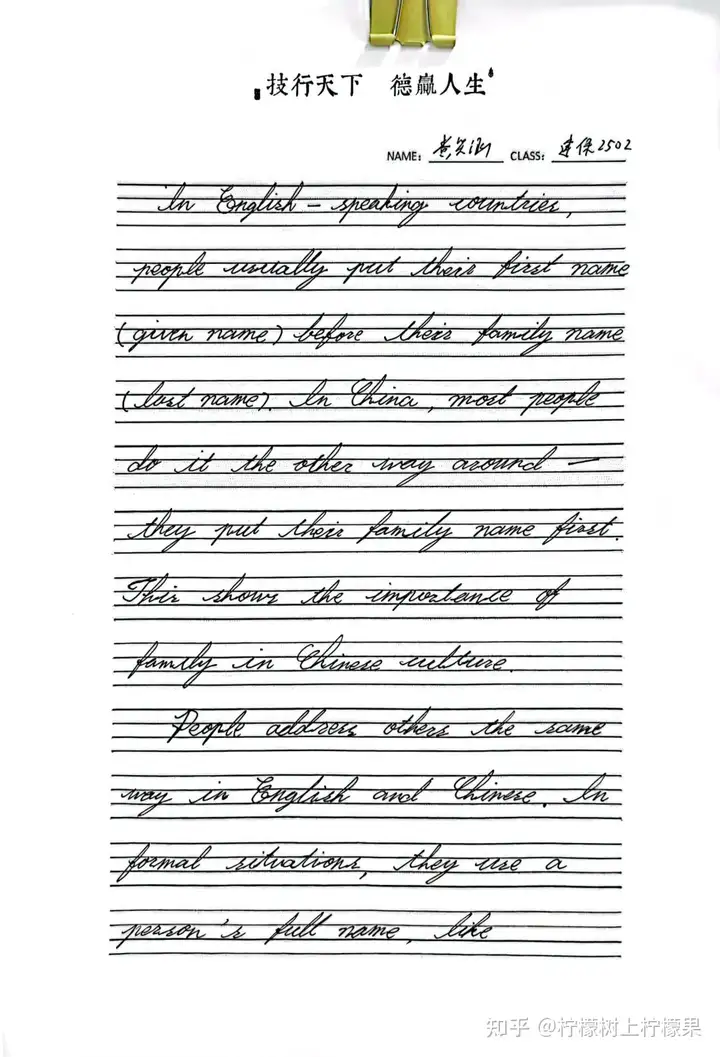 技行天下 德赢人生
NAME: CLASS: 建保2502
In English - speaking countries,
people usually put their first name
(given name) before their family name
(last name). In China, most people
do it the other way around —
they put their family name first.
This shows the importance of
family in Chinese culture.
People address others the same
way in English and Chinese. In
formal situations, they use a
person's full name, like
知乎 @柠檬树上柠檬果